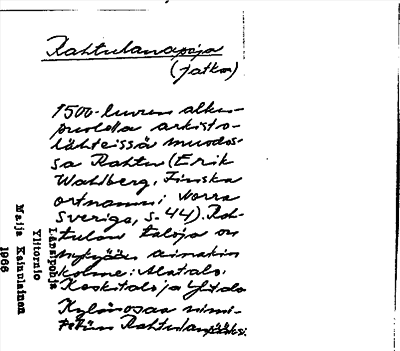 Rahtulanapaja
(jatkoa)
1500-luvun alku-
puolella arkisto-
lähteissä muodos-
sa Rahtu (Erik
Wahlberg, Finska
ortnamn i Norra
Sverige, s. 44). Rah-
tulan taloja on
nykyään ainakin
kolme: Alatalo,
Keskitalo ja Ylitalo
Kylänosaa nimi-
tetään Rahtulanpääksi.
Länsipohja
Ylitornio
Maija Kainulainen
1966